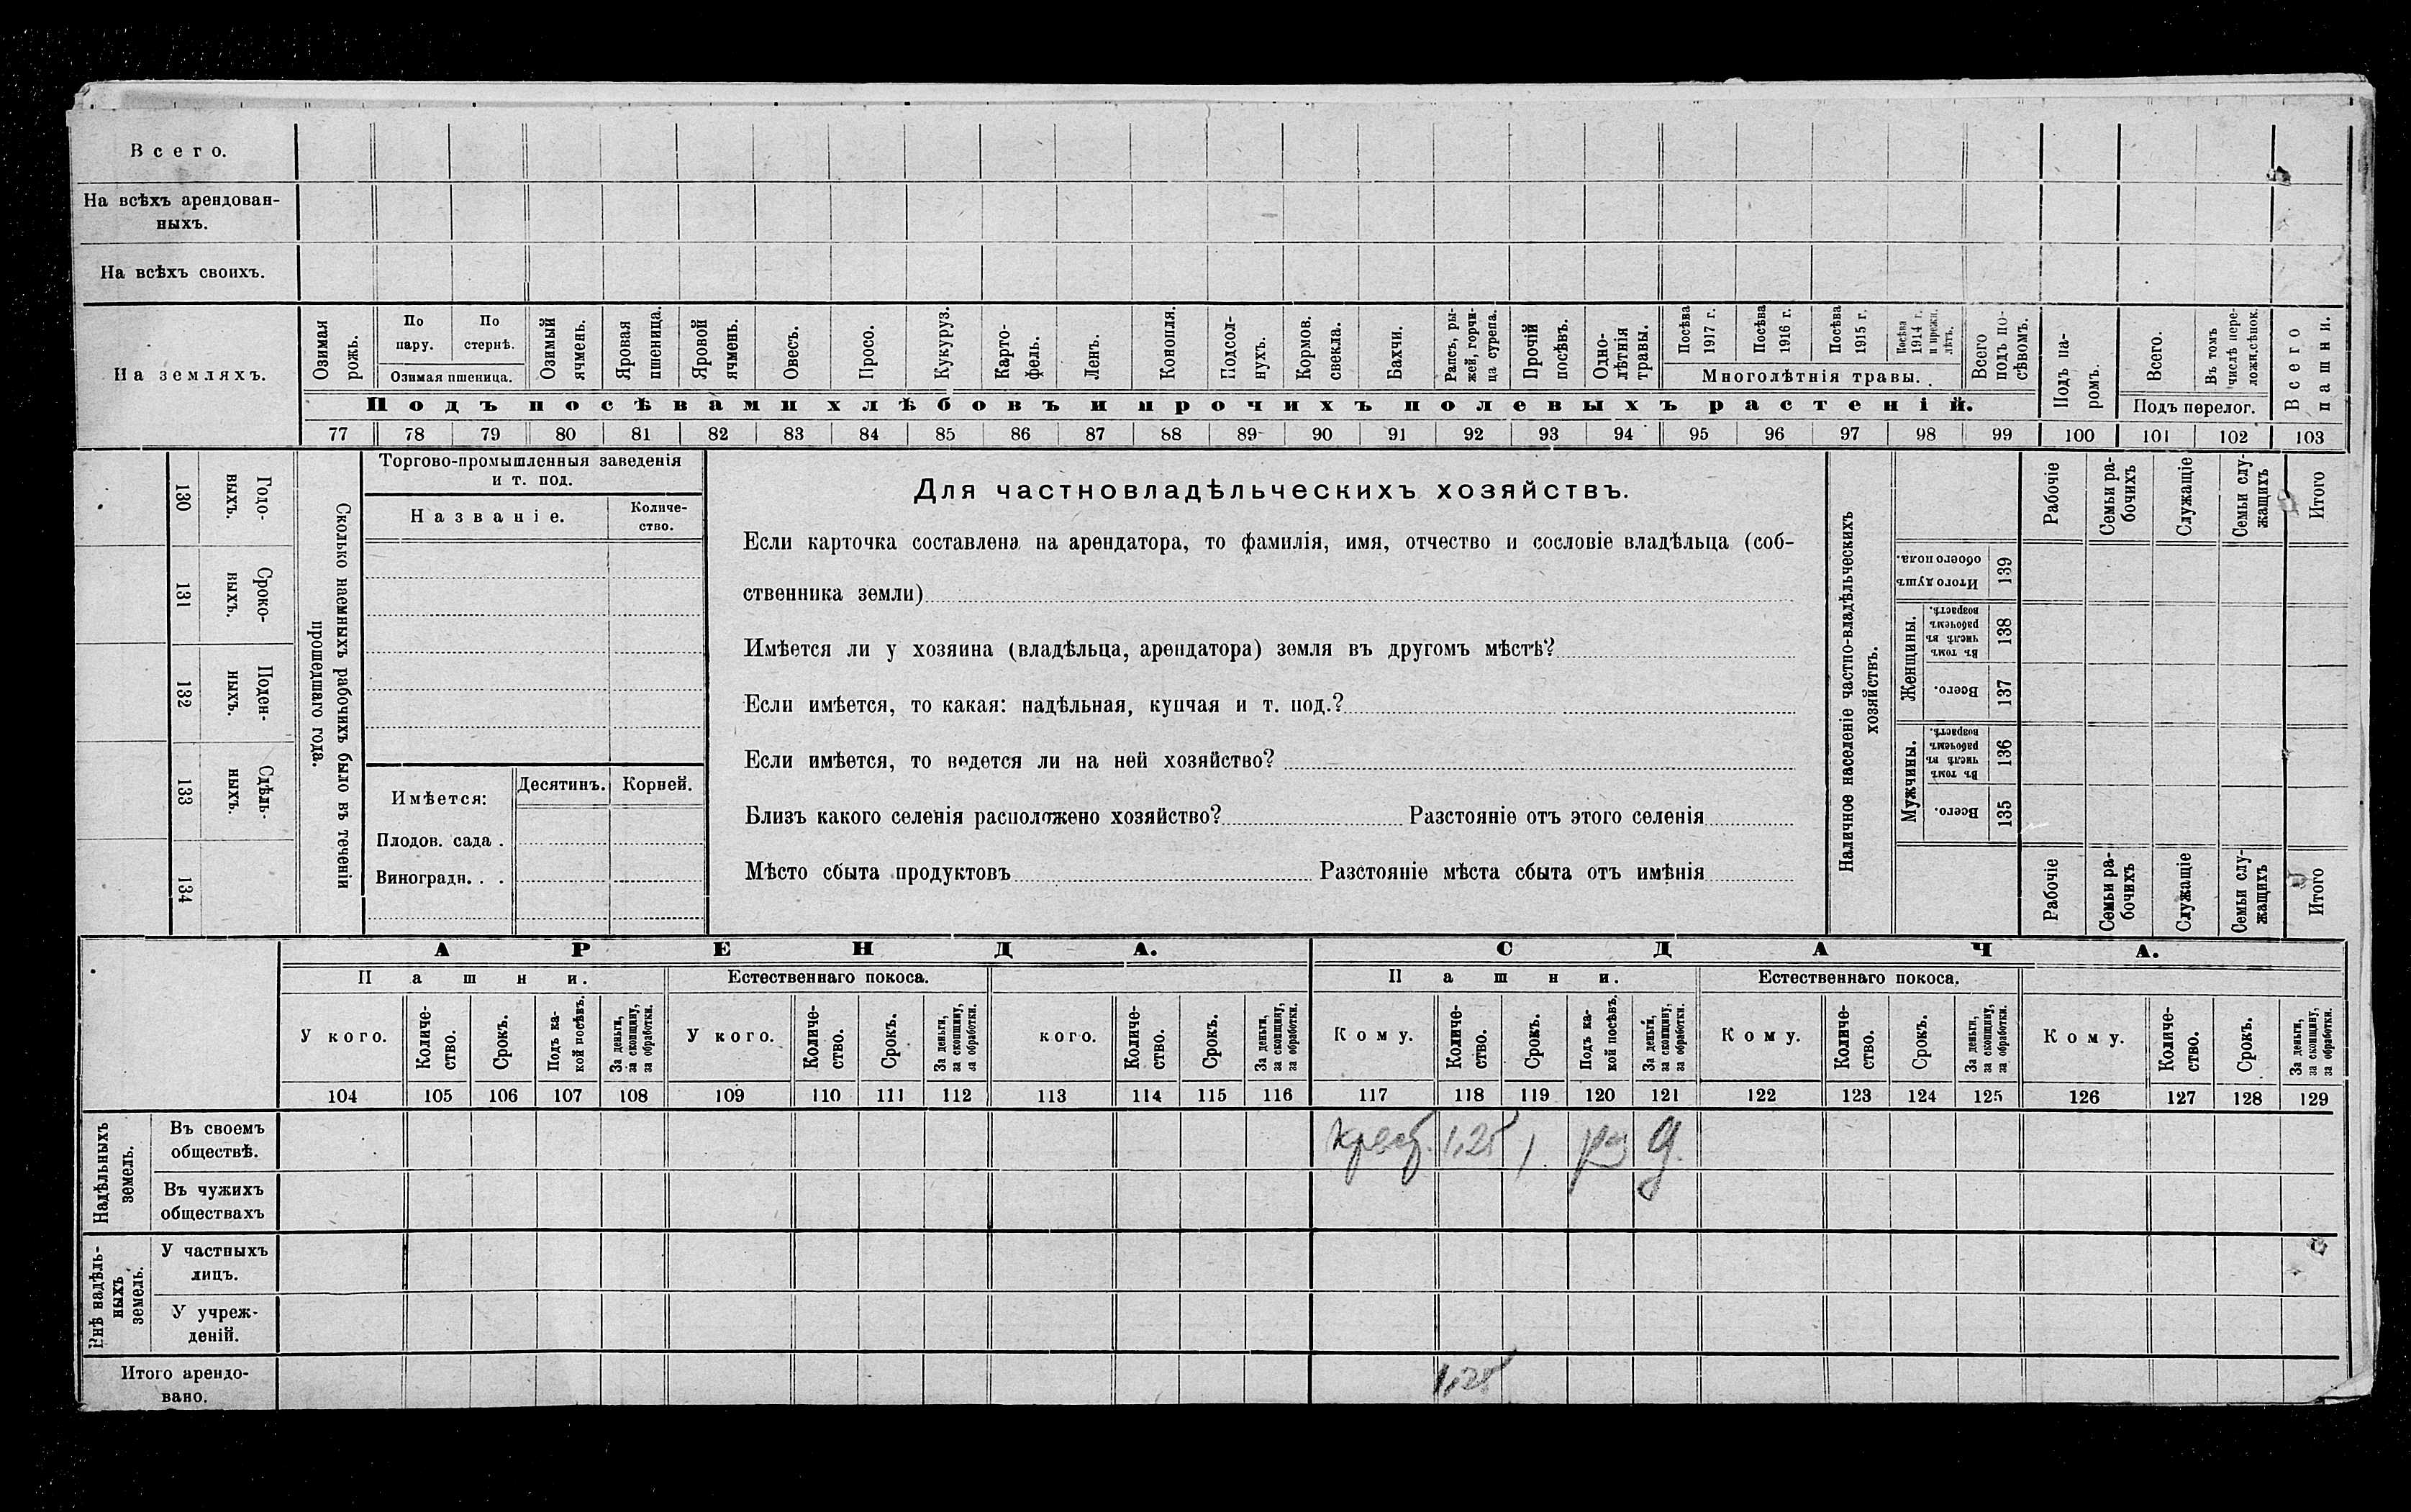 Всего.
На всѣхъ арендован-
ныхъ.
На всѣхъ своихъ.
На земляхъ.
Озимая рожь.
По пару.
По стернѣ.
Озимая пшеница.
Озимый ячмень.
Яровая пшеница.
Яровой ячмень.
Овесъ.
Просо.
Кукуруз.
Карто-
фель.
Ленъ.
Конопля.
Подсол-
нухъ.
Кормов. свекла.
Бахчи.
Рапсъ, ры-
жей, горчи-
ца сурепа.
Прочій посѣвъ.
Одно-
лѣтнія травы.
Посѣва 1917 г.
Посѣва 1916 г.
Посѣва 1915 г.
Посѣва 1914 г. и прежн. лѣтъ.
Многолѣтнія травы.
Всего подъ по-
сѣвомъ.
Подъ па-
ромъ.
Всего.
Въ томъ числѣ пере-
ложн. сѣнок.
Подъ перелог.
Всего пашни.
Подъ посѣвами хлѣбовъ и прочихъ полевыхъ растеній.
77 78 79 80 81 82 83 84 85 86 87 88 89 90 91 92 93 94 95 96 97 98 99 100 101 102 103
130 Годо-
выхъ.
131 Сроко-
выхъ.
132 Поден-
ныхъ.
133 Сдѣль-
ныхъ.
134
Сколько наемныхъ рабочихъ было въ теченіи
прошедшаго года.
Торгово-промышленныя заведенія
и т. под.
Названіе.
Количе-
ство.
Имѣется:
Десятинъ. Корней.
Плодов. сада .
Виноградн. . .
Для частновладѣльческихъ хозяйствъ.
Если карточка составлена на арендатора, то фамилія, имя, отчество и сословіе владѣльца (соб-
ственника земли)
Имѣется ли у хозяина (владѣльца, арендатора) земля въ другомъ мѣстѣ?
Если имѣется, то какая: надѣльная, купчая и т. под.?
Если имѣется, то ведется ли на ней хозяйство?
Близъ какого селенія расположено хозяйство? Разстояніе отъ этого селенія
Мѣсто сбыта продуктовъ Разстояніе мѣста сбыта отъ имѣнія
Наличное населеніе частно-владѣльческихъ
хозяйствъ.
Рабочіе
Семьи ра-
бочихъ
Служащіе
Семьи слу-
жащихъ
Итого
Итого душъ обоего пола. 139
Женщины.
Въ томъ числѣ въ рабочемъ возрастѣ. 138
Всего. 137
Мужчины.
Въ томъ числѣ въ рабочемъ возрастѣ. 136
Всего. 135
Рабочіе
Семьи ра-
бочихъ
Служащіе
Семьи слу-
жащихъ
Итого
АРЕНДА.
СДАЧА.
Пашни.
Естественнаго покоса.
Пашни.
Естественнаго покоса.
У кого.
Количе-
ство.
Срокъ.
Подъ ка-
кой посѣвъ.
За деньги, за скопщину, за обработки.
У кого.
Количе-
ство.
Срокъ.
За деньги, за скопщину, за обработки.
кого.
Количе-
ство.
Срокъ.
За деньги, за скопщину, за обработки.
Кому.
Количе-
ство.
Срокъ.
Подъ ка-
кой посѣвъ.
За деньги, за скопщину, за обработки.
Кому.
Количе-
ство.
Срокъ.
За деньги, за скопщину, за обработки.
Кому.
Количе-
ство.
Срокъ.
За деньги, за скопщину, за обработки.
104 105 106 107 108 109 110 111 112 113 114 115 116 117 118 119 120 121 122 123 124 125 126 127 128 129
Надѣльныхъ
земель.
Въ своемъ
обществѣ.
Крест. 1,25 1 д.
Въ чужихъ
обществахъ
Внѣ надѣль-
ныхъ
земель.
У частныхъ
лицъ.
У учреж-
деній.
Итого арендо-
вано.
1,25